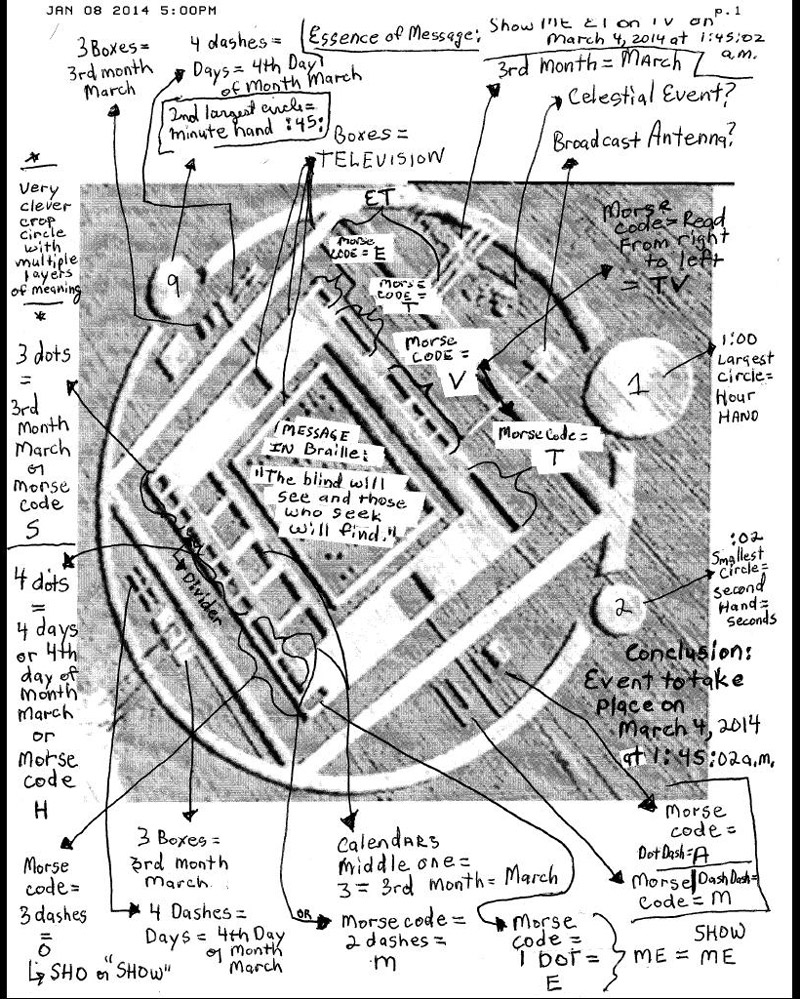 JAN 08 2014 5:00PM
p.1
3 Boxes =
3rd month
March
4 dashes =
Days = 4th Day
of Month March
Essence of Message:
Show ME ET on TV on
March 4, 2014 at 1:45:02
a.m.
3rd month = MArch
2nd largest circle =
minute hand :45:
Boxes =
TELEVISION
Celestial Event?
Broadcast Antenna?
*
Very
clever
crop
circle
with
multiple
layers
of meaning
*
ET
Morse
CODE = E
Morse
CODE =
T
Morse
CODE =
V
Morse
code = Read
From right
to left
= TV
9
1
1:00
Largest
Circle =
Hour
HAND
Morse Code =
T
MESSAGE
IN Braille:
"The blind will
see and those
who seek
will find."
3 dots
=
3rd
Month
March
or
Morse
code
S
Divider
4 dots
=
4 days
or 4th
day of
month
March
or
Morse
code
H
2
:02
Smallest
Circle =
second
Hand =
seconds
Conclusion:
Event to take
place on
March 4, 2014
at 1:45:02a.m.
Morse
code =
3 dashes
=
O
SHO or "SHOW"
3 Boxes =
3rd month
March
4 Dashes =
Days = 4th Day
of Month
March
CalendARS
middle one =
3 = 3rd month = March
OR
Morse code =
2 dashes =
M
Morse
code =
1 Dot =
E
ME = ME
SHOW
Morse
code =
Dot Dash = A
Morse Dash Dash =
code = M